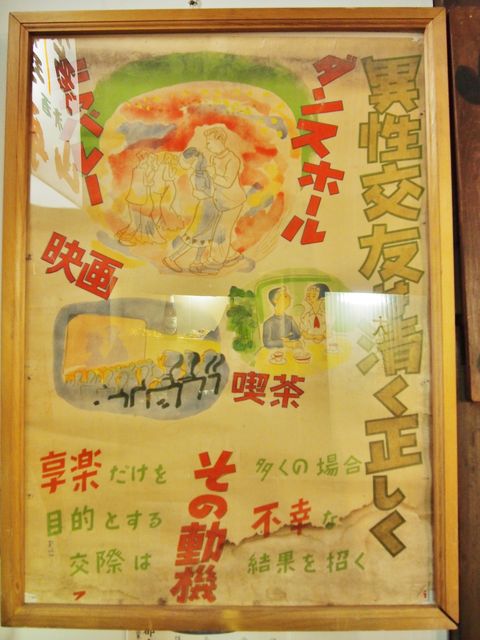 異性交友は清く正しく
ダンスホール
キャバレー
映画
喫茶
その動機
享楽だけを
目的とする
交際は
多くの場合
不幸な
結果を招く